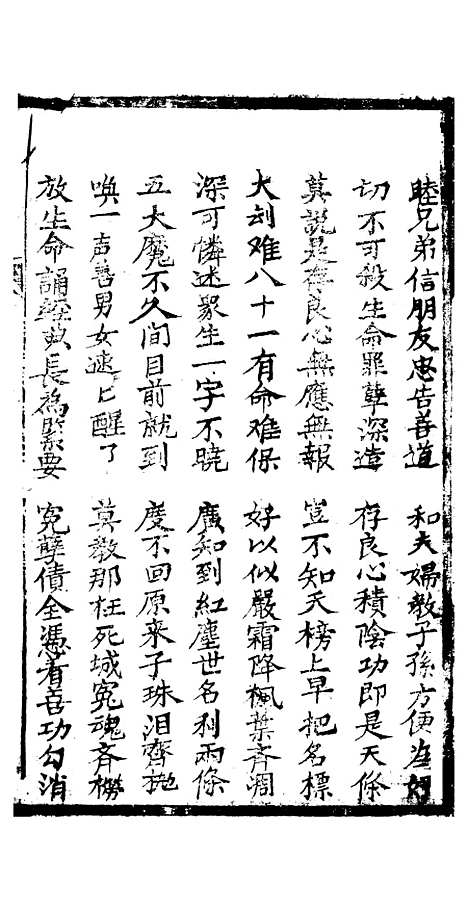 睦兄弟信朋友忠告善道　和夫婦教子孫方便為好
切不可殺生命罪孽深造　存良心積陰功即是天條
莫說是存良心無應無報　豈不知天榜上早把名標
大劫难八十一有命难保　好以似嚴霜降楓葉齊凋
深可憐迷眾生一字不曉　廣知到紅塵世名利兩條
五大魔不久间目前就到　度不回原来子珠泪齊抛
喚一声善男女速匕醒了　莫教那枉死城冤魂斉榜
放生命誦經典長為緊要　冤孽債全憑着善功勾消